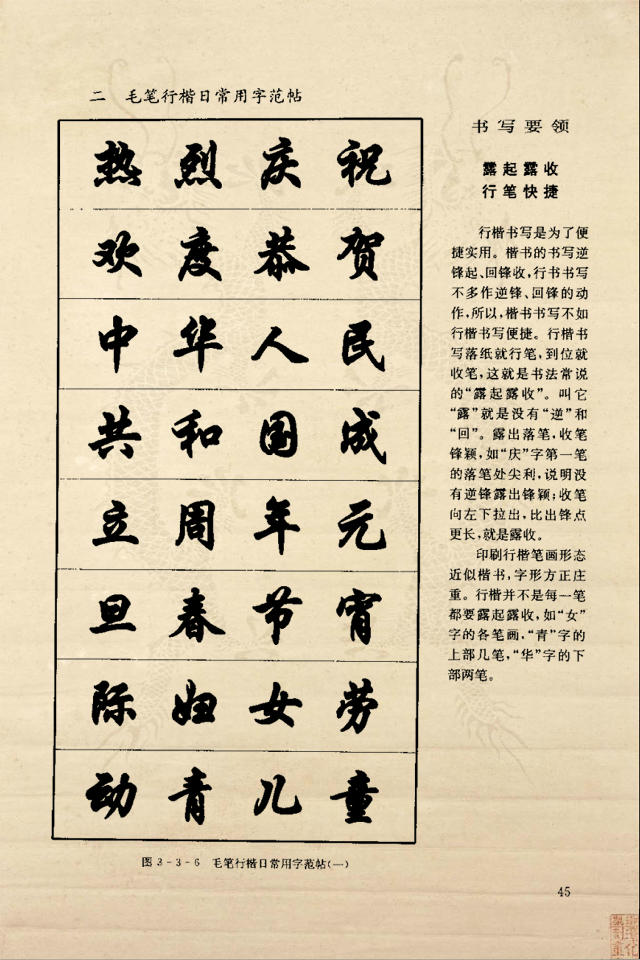 二 毛笔行楷日常用字范帖
热烈庆祝
欢度恭贺
中华人民
共和国成
立周年元
旦春节宵
际妇女劳
动青儿童
图 3-3-6 毛笔行楷日常用字范帖(一)
书写要领
露起露收
行笔快捷
行楷书写是为了便
捷实用。楷书的书写逆
锋起、回锋收,行书书写
不多作逆锋、回锋的动
作,所以,楷书书写不如
行楷书写便捷。行楷书
写落纸就行笔,到位就
收笔,这就是书法常说
的“露起露收”。叫它
“露”就是没有“逆”和
“回”。露出落笔,收笔
锋颖,如“庆”字第一笔
的落笔处尖利,说明没
有逆锋露出锋颖;收笔
向左下拉出,比出锋点
更长,就是露收。
印刷行楷笔画形态
近似楷书,字形方正庄
重。行楷并不是每一笔
都要露起露收,如“女”
字的各笔画,“青”字的
上部几笔,“华”字的下
部两笔。
45